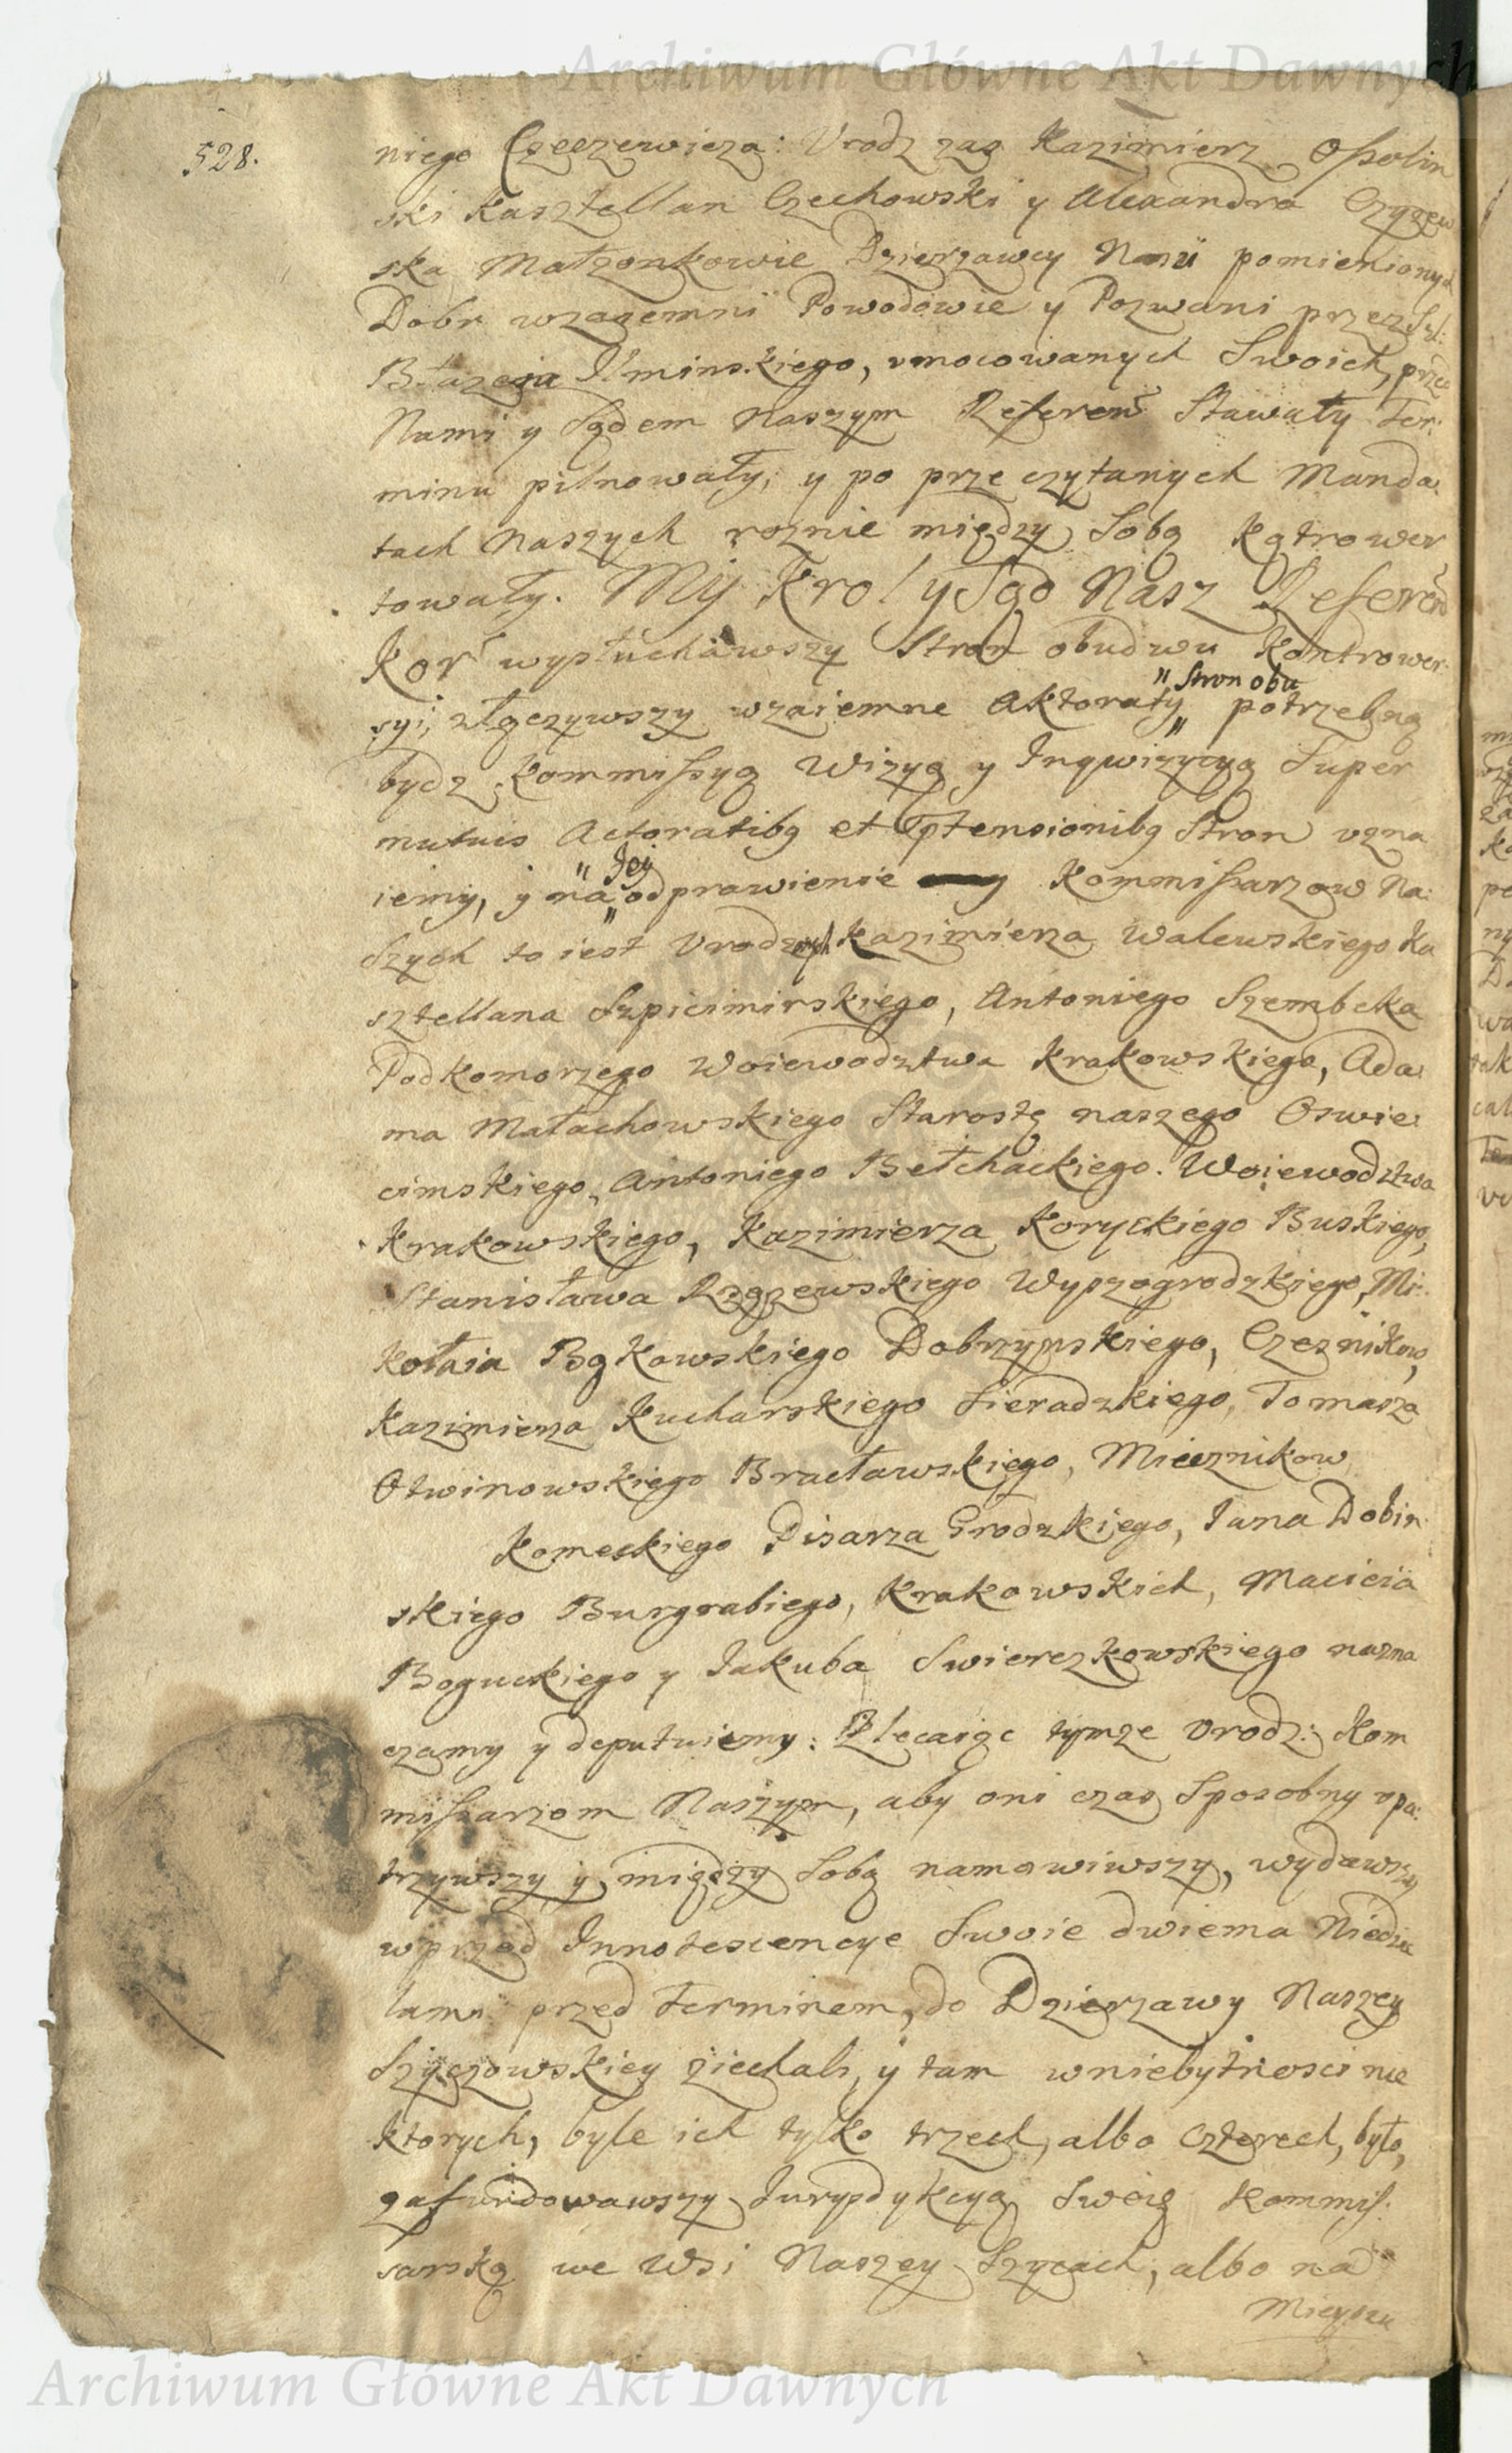 Archiwum Główne Akt Dawnych
528.
niego Czeczewicza: Urodz zas Kazimierz Ossolin
ski Kasztellan Czechowski y Alexandra Czyzew
ska Małzonkowie Dzierzawcy pomienionych
Dobr wzaiemni Powodowie y Pozwani przez Szl:
Błazeia Ilminskiego, umocowanych Swoich, prze
Nami y Sądem Naszym Referen Stawały Ter:
minu pilnowały, y po przeczytanych Manda:
tach Naszych roznie między Sobą Kątrower
towały. My Krol y Sąd Nasz Referen
Kor wysłuchawszy Stron obudwu Kontrower:
syi, złączywszy wzaiemne Aktoraty " Stron obu " potrzebną
bydz Kommissyą Wizyą y Inqwizycyą Super
mutuis Actoratibq et Ptensionibq Stron uzna
iemy, y na " Iey " odprawienie Kommissarzow Na:
szych to iest Urodzonych Kazimierza Walewskiego Ka
sztellana Szpicimirskiego, Antoniego Szembeka
Podkomorzego Woiewodztwa Krakowskiego, Ada:
ma Małachowskiego Starostę naszego Oswie:
cimskiego, Antoniego Bełchackiego. Woiewodztwa
Krakowskiego, Kazimierza Koryckiego Buskiego,
Stanisława Rzączewskiego Wyszogrodzkiego, Mi:
kołaia Bąkowskiego Dobrzynskiego, Czesnikow,
Kazimierza Kucharskiego Sieradzkiego, Tomasza
Otwinowskiego Bracławskiego, Miecznikow
Komeckiego Pisarza Grodzkiego, Jana Dobin
skiego Burgrabiego, Krakowskich, Macieia
Boguckiego y Jakuba Swierczkowskiego nazna
czamy y deputuiemy: Zlecaiąc tymze Urodz: Kom
missarzom Naszym, aby oni czas Sposobny upa:
trzywszy y między Sobą namowiwszy, wydawszy
wprzod Innotescencye Swoie dwiema Niedzie
lami przed terminem, do Dzierzawy Naszey
Szyczowskiey ziechali, y tam w niebytnosci nie
ktorych, byle ich tylko trzech, albo czterech, było,
zafundowawszy Jurysdykcyą Swoią Kommis:
sarską we Wsi Naszey Szycach, albo na
Mieyscu
Archiwum Główne Akt Dawnych